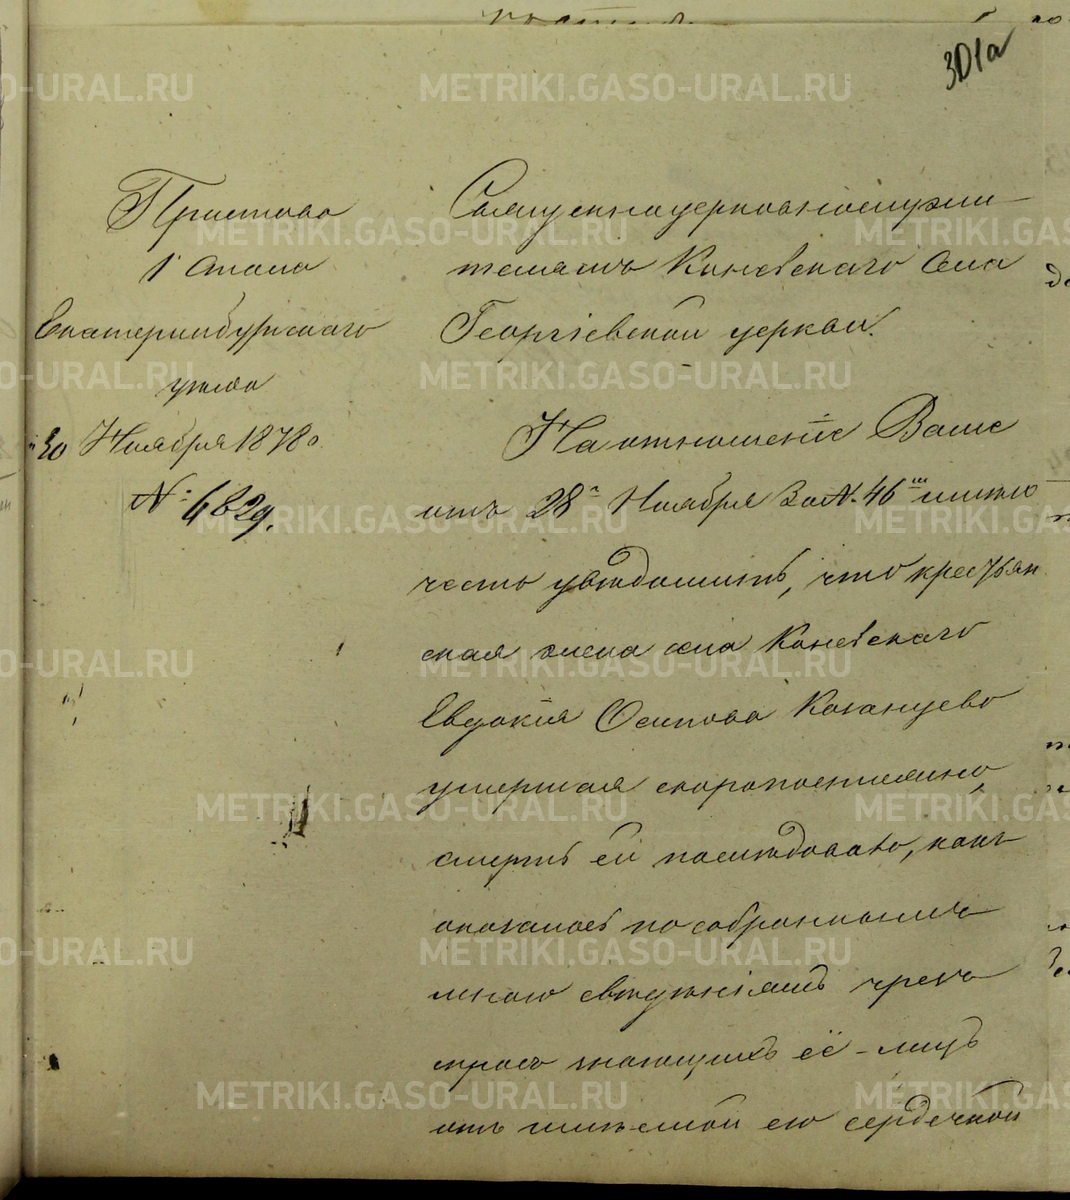 301а
Пристава
1 Стана
Екатеринбургскаго
уезда
30 Ноября 1878 г.
№ 6829.
Священноцерковнослужи-
телямъ Коневскаго села
Георгіевской церкви.
На отношеніе Ваше
отъ 28 Ноября за № 46 имѣю
честь увѣдомить, что крестьян
ская жена села Коневскаго
Евдокія Осипова
умершая скоропостижно,
смерть ей последовало, какъ
оказалось по собраннымъ
мною свѣденіямъ чрезъ
спросъ знающихъ её - лицъ
отъ имѣемой ею сердечной
METRIKI.GASO-URAL.RU